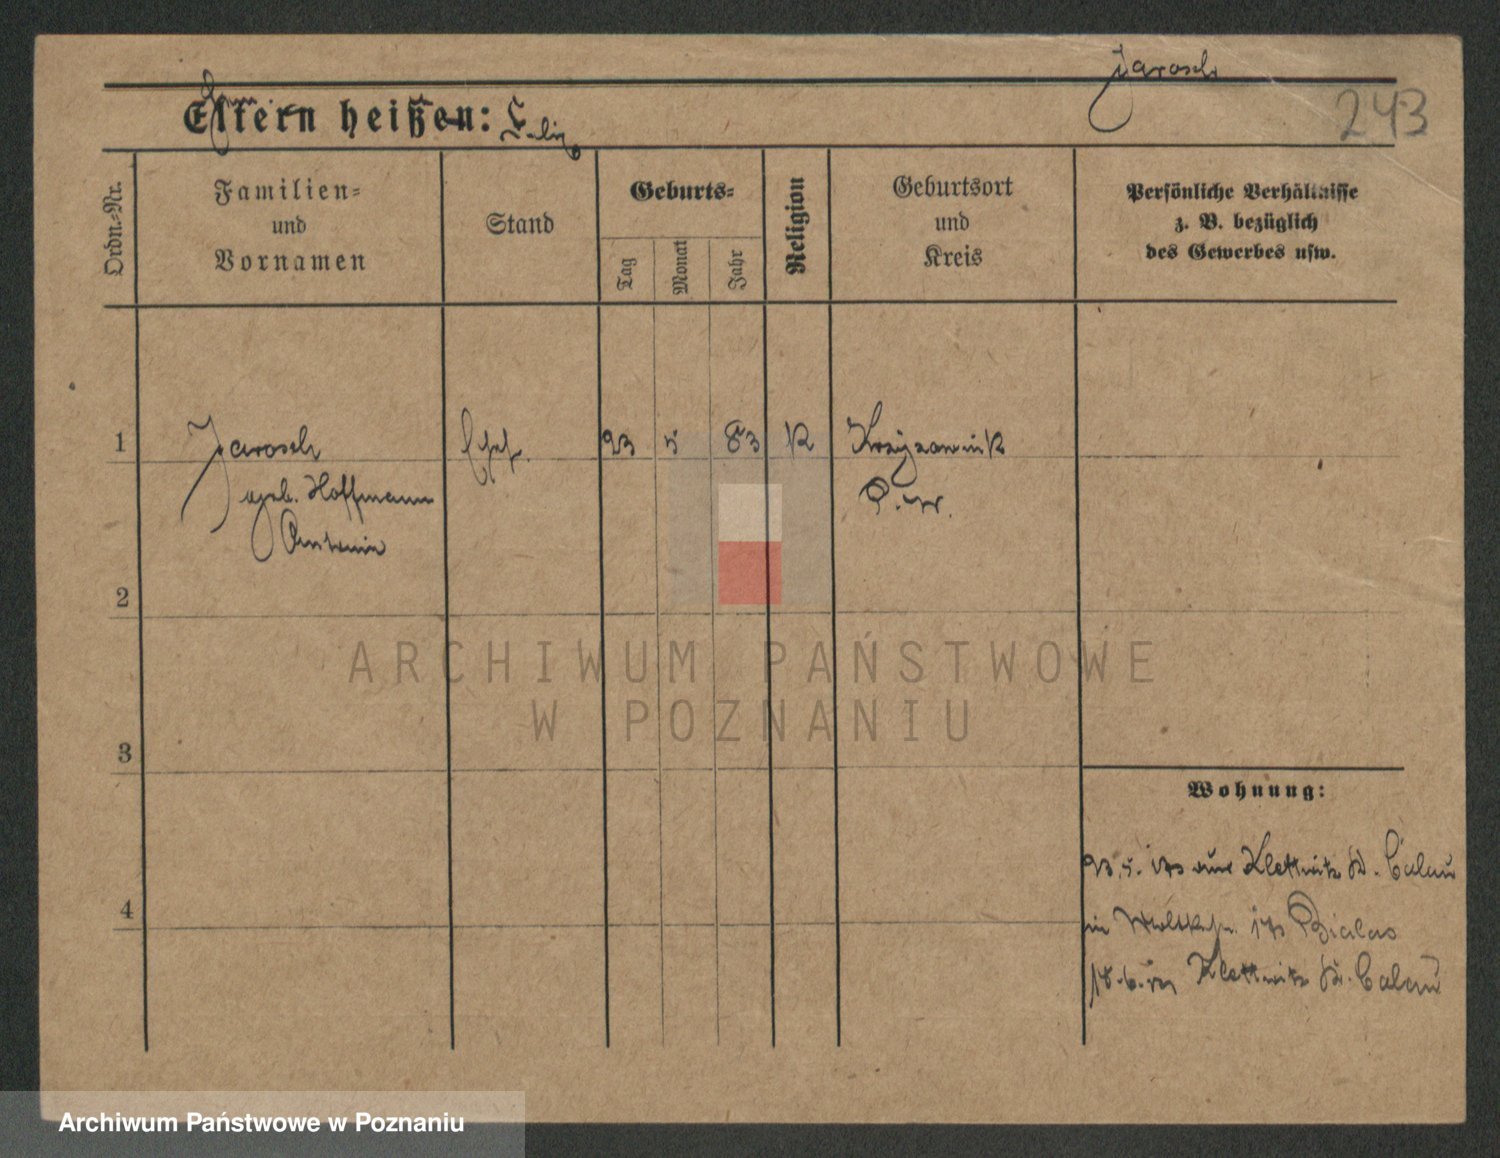 Jarosch
243
Eltern heißen:
Ordn.-Nr.
Familien-
und
Vornamen
Stand
Geburts-
Tag
Monat
Jahr
Religion
Geburtsort
und
Kreis
Persönliche Verhältnisse
z. B. bezüglich
des Gewerbes usw.
1
Jarosch
geb. Hoffmann
Antonie
Ehef.
23
5
83
K
P. W.
2
3
4
ARCHIWUM PAŃSTWOWE
W POZNANIU
Wohnung:
23.5. Klettwitz Kr. Calau
in 17 Bialas
18.6. Klettwitz Kr. Calau
Archiwum Państwowe w Poznaniu